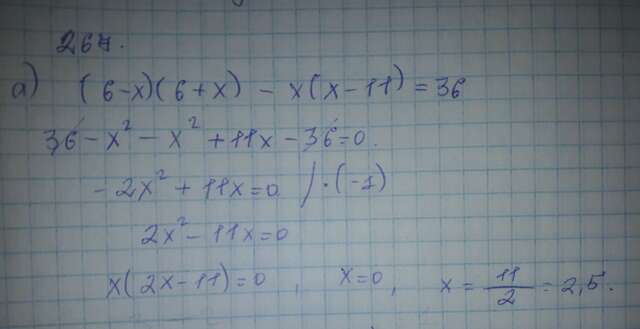 267.
а) (6-x)(6+x) - x(x-11) = 36
36 - x² - x² + 11x - 36 = 0.
- 2x² + 11x = 0 / · (-1)
2x² - 11x = 0
x(2x-11) = 0 , x=0, x = 11/2 = 2,5.